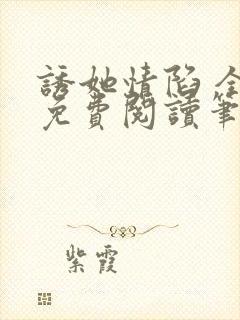 誘她情陷 全
免費閱讀筆
紫霞